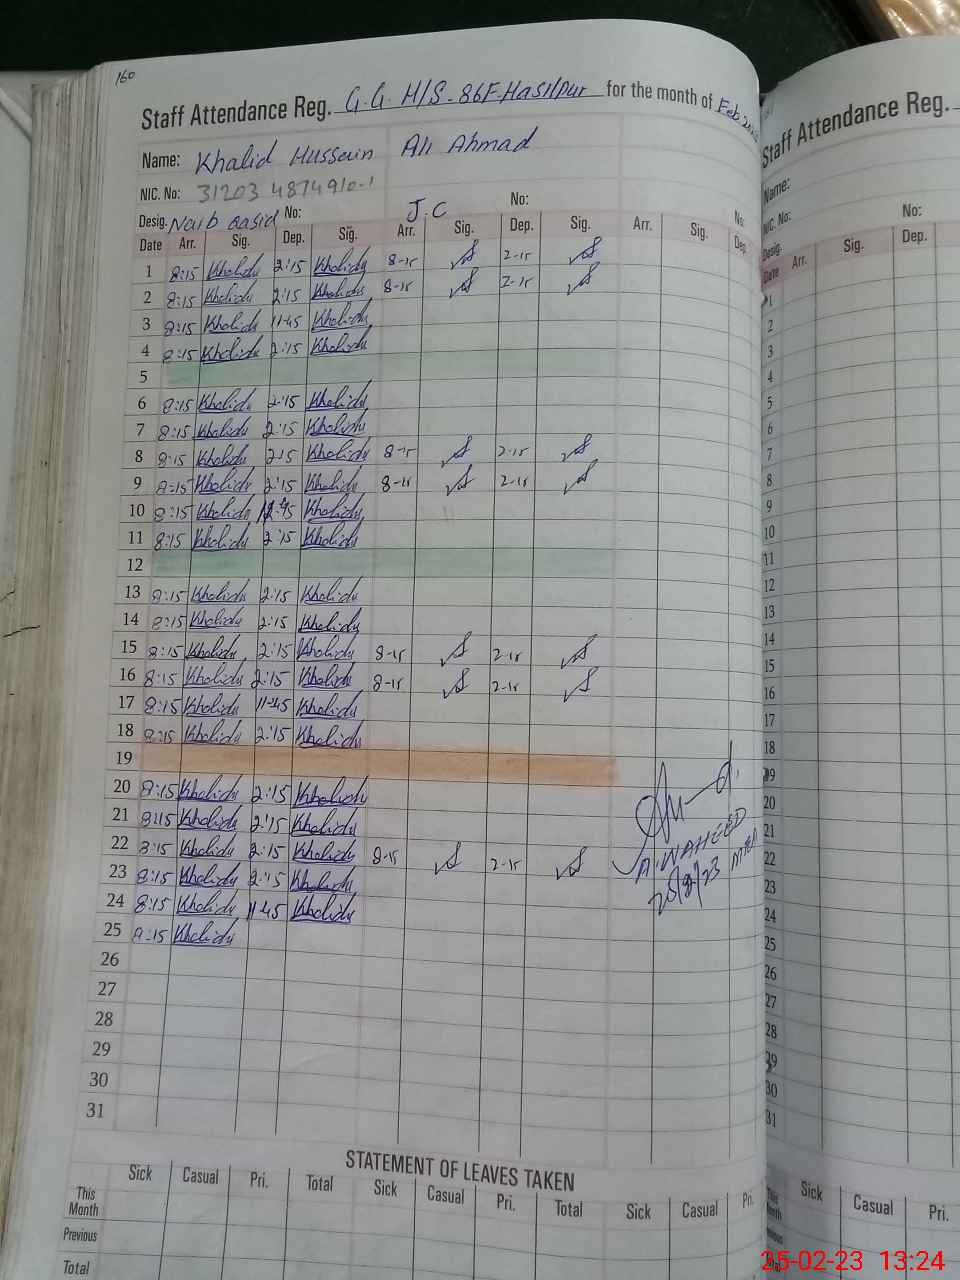 160
Staff Attendance Reg. G.G. H/S-86F-Hasilpur for the month of Feb
Name: Khalid Hussain Ali Ahmad
NIC. No: 31203 4874910-1
Desig. Naib Qasid No: J.C No: No:
Date Arr. Sig. Dep. Sig. Arr. Sig. Dep. Sig. Arr. Sig. Dep.
1 8:15 Khalidu 2:15 Khalidu 8-15 2-15
2 8:15 Khalidu 2:15 Khalidu 8-15 2-15
3 8:15 Khalidu 11-45 Khalidu
4 8:15 Khalidu 2:15 Khalidu
5
6 8:15 Khalidu 2:15 Khalidu
7 8:15 Khalidu 2:15 Khalidu
8 8:15 Khalidu 2:15 Khalidu 8-15 2-15
9 8:15 Khalidu 2:15 Khalidu 8-15 2-15
10 8:15 Khalidu 11:45 Khalidu
11 8:15 Khalidu 2:15 Khalidu
12
13 8:15 Khalidu 2:15 Khalidu
14 8:15 Khalidu 2:15 Khalidu
15 8:15 Khalidu 2:15 Khalidu 8-15 2-15
16 8:15 Khalidu 2:15 Khalidu 8-15 2-15
17 8:15 Khalidu 11-45 Khalidu
18 8:15 Khalidu 2:15 Khalidu
19
20 8:15 Khalidu 2:15 Khalidu
21 8:15 Khalidu 2:15 Khalidu
22 8:15 Khalidu 2:15 Khalidu 8-15 2-15
23 8:15 Khalidu 2:15 Khalidu
24 8:15 Khalidu 11-45 Khalidu
25 8:15 Khalidu
26
27
28
29
30
31
A.WAHEED MEA
25/2/23
STATEMENT OF LEAVES TAKEN
Sick Casual Pri. Total Sick Casual Pri. Total Sick Casual Pri.
This Month
Previous
Total
Staff Attendance Reg.
Name:
NIC. No:
Desig. No:
Date Arr. Sig. Dep.
1
2
3
4
5
6
7
8
9
10
11
12
13
14
15
16
17
18
19
20
21
22
23
24
25
26
27
28
29
30
31
Sick Casual Pri.
This Month
25-02-23 13:24